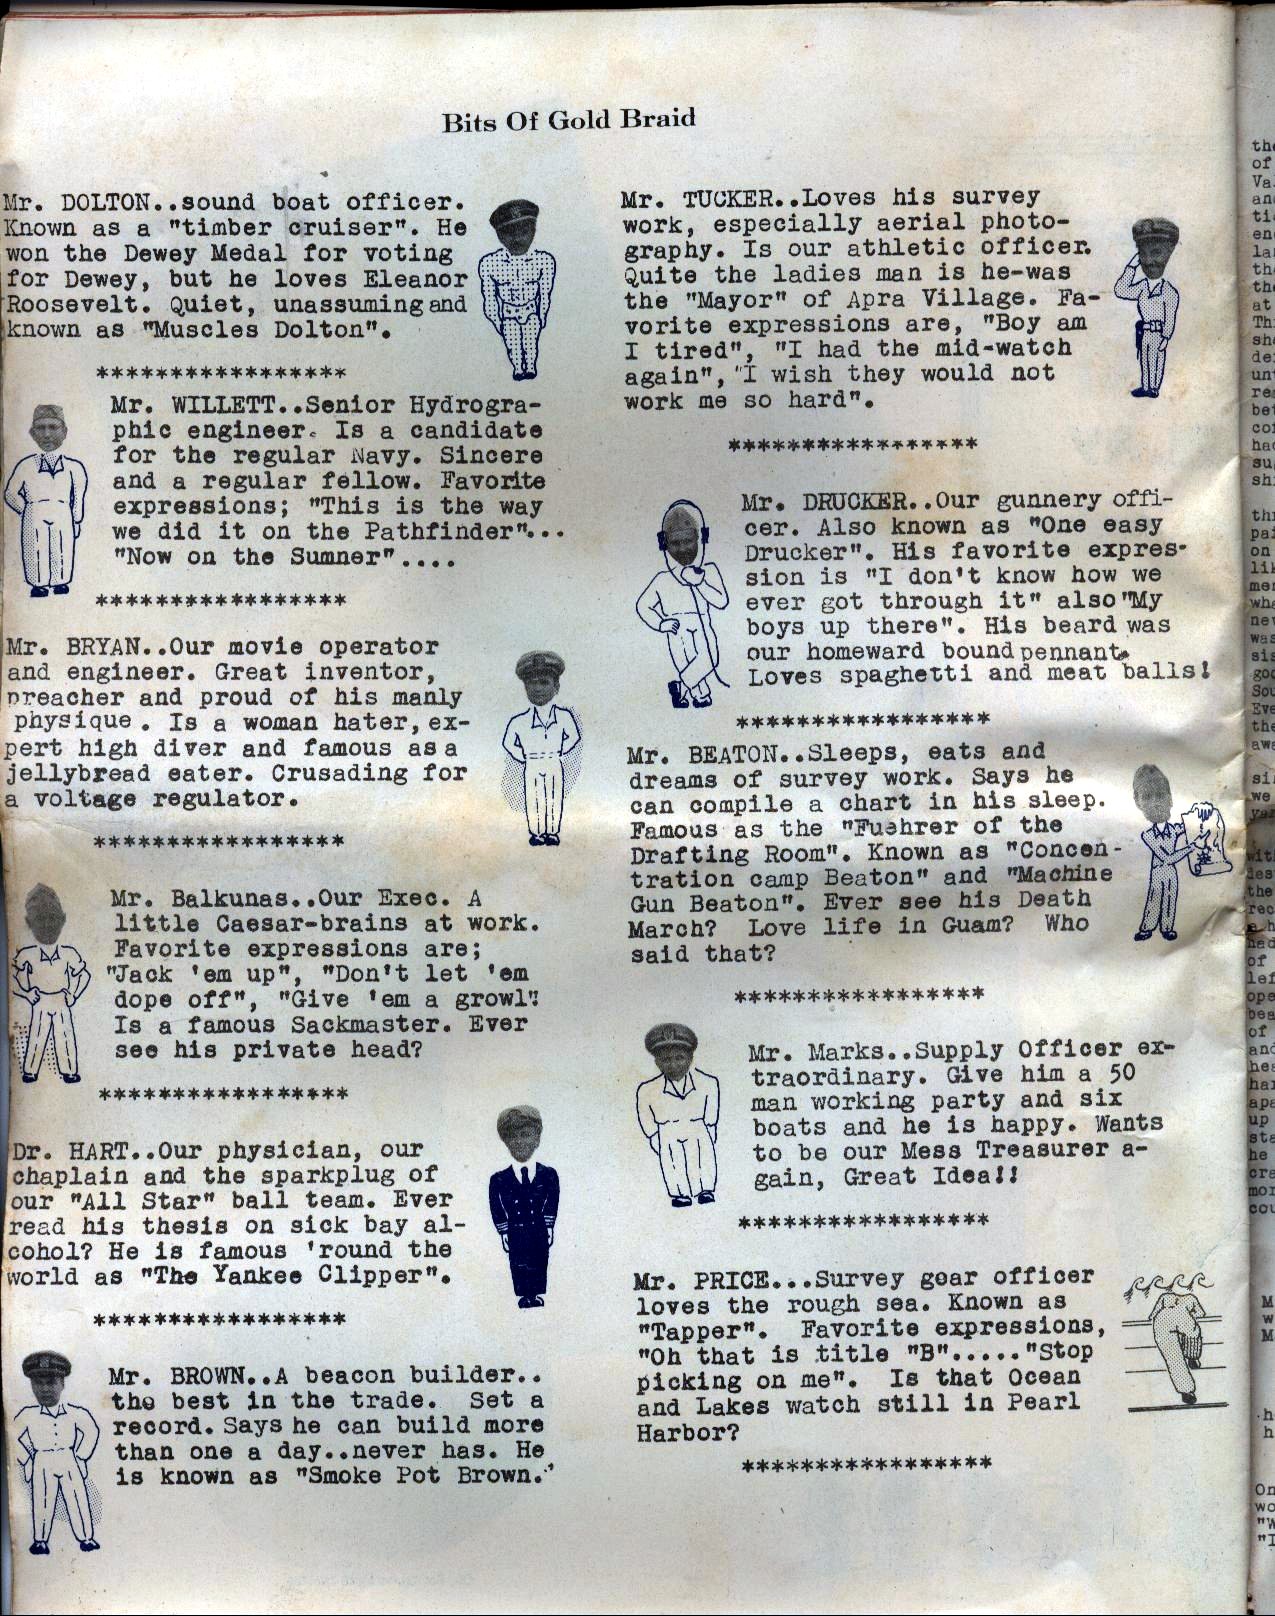 Bits Of Gold Braid
Mr. DOLTON..sound boat officer.
Known as a "timber cruiser". He
won the Dewey Medal for voting
for Dewey, but he loves Eleanor
Roosevelt. Quiet, unassuming and
known as "Muscles Dolton".
*****************
Mr. WILLETT..Senior Hydrogra-
phic engineer. Is a candidate
for the regular Navy. Sincere
and a regular fellow. Favorite
expressions; "This is the way
we did it on the Pathfinder"...
"Now on the Sumner"....
*****************
Mr. BRYAN..Our movie operator
and engineer. Great inventor,
preacher and proud of his manly
physique. Is a woman hater, ex-
pert high diver and famous as a
jellybread eater. Crusading for
a voltage regulator.
*****************
Mr. Balkunas..Our Exec. A
little Caesar-brains at work.
Favorite expressions are;
"Jack 'em up", "Don't let 'em
dope off", "Give 'em a growl".
Is a famous Sackmaster. Ever
see his private head?
*****************
Dr. HART..Our physician, our
chaplain and the sparkplug of
our "All Star" ball team. Ever
read his thesis on sick bay al-
cohol? He is famous 'round the
world as "The Yankee Clipper".
*****************
Mr. BROWN..A beacon builder..
the best in the trade. Set a
record. Says he can build more
than one a day..never has. He
is known as "Smoke Pot Brown."
Mr. TUCKER..Loves his survey
work, especially aerial photo-
graphy. Is our athletic officer.
Quite the ladies man is he-was
the "Mayor" of Apra Village. Fa-
vorite expressions are, "Boy am
I tired", "I had the mid-watch
again", "I wish they would not
work me so hard".
*****************
Mr. DRUCKER..Our gunnery offi-
cer. Also known as "One easy
Drucker". His favorite expres-
sion is "I don't know how we
ever got through it" also "My
boys up there". His beard was
our homeward bound pennant.
Loves spaghetti and meat balls!
*****************
Mr. BEATON..Sleeps, eats and
dreams of survey work. Says he
can compile a chart in his sleep.
Famous as the "Fuehrer of the
Drafting Room". Known as "Concen-
tration camp Beaton" and "Machine
Gun Beaton". Ever see his Death
March? Love life in Guam? Who
said that?
*****************
Mr. Marks..Supply Officer ex-
traordinary. Give him a 50
man working party and six
boats and he is happy. Wants
to be our Mess Treasurer a-
gain, Great Idea!!
*****************
Mr. PRICE...Survey gear officer
loves the rough sea. Known as
"Tapper". Favorite expressions,
"Oh that is title "B"....."Stop
picking on me". Is that Ocean
and Lakes watch still in Pearl
Harbor?
*****************